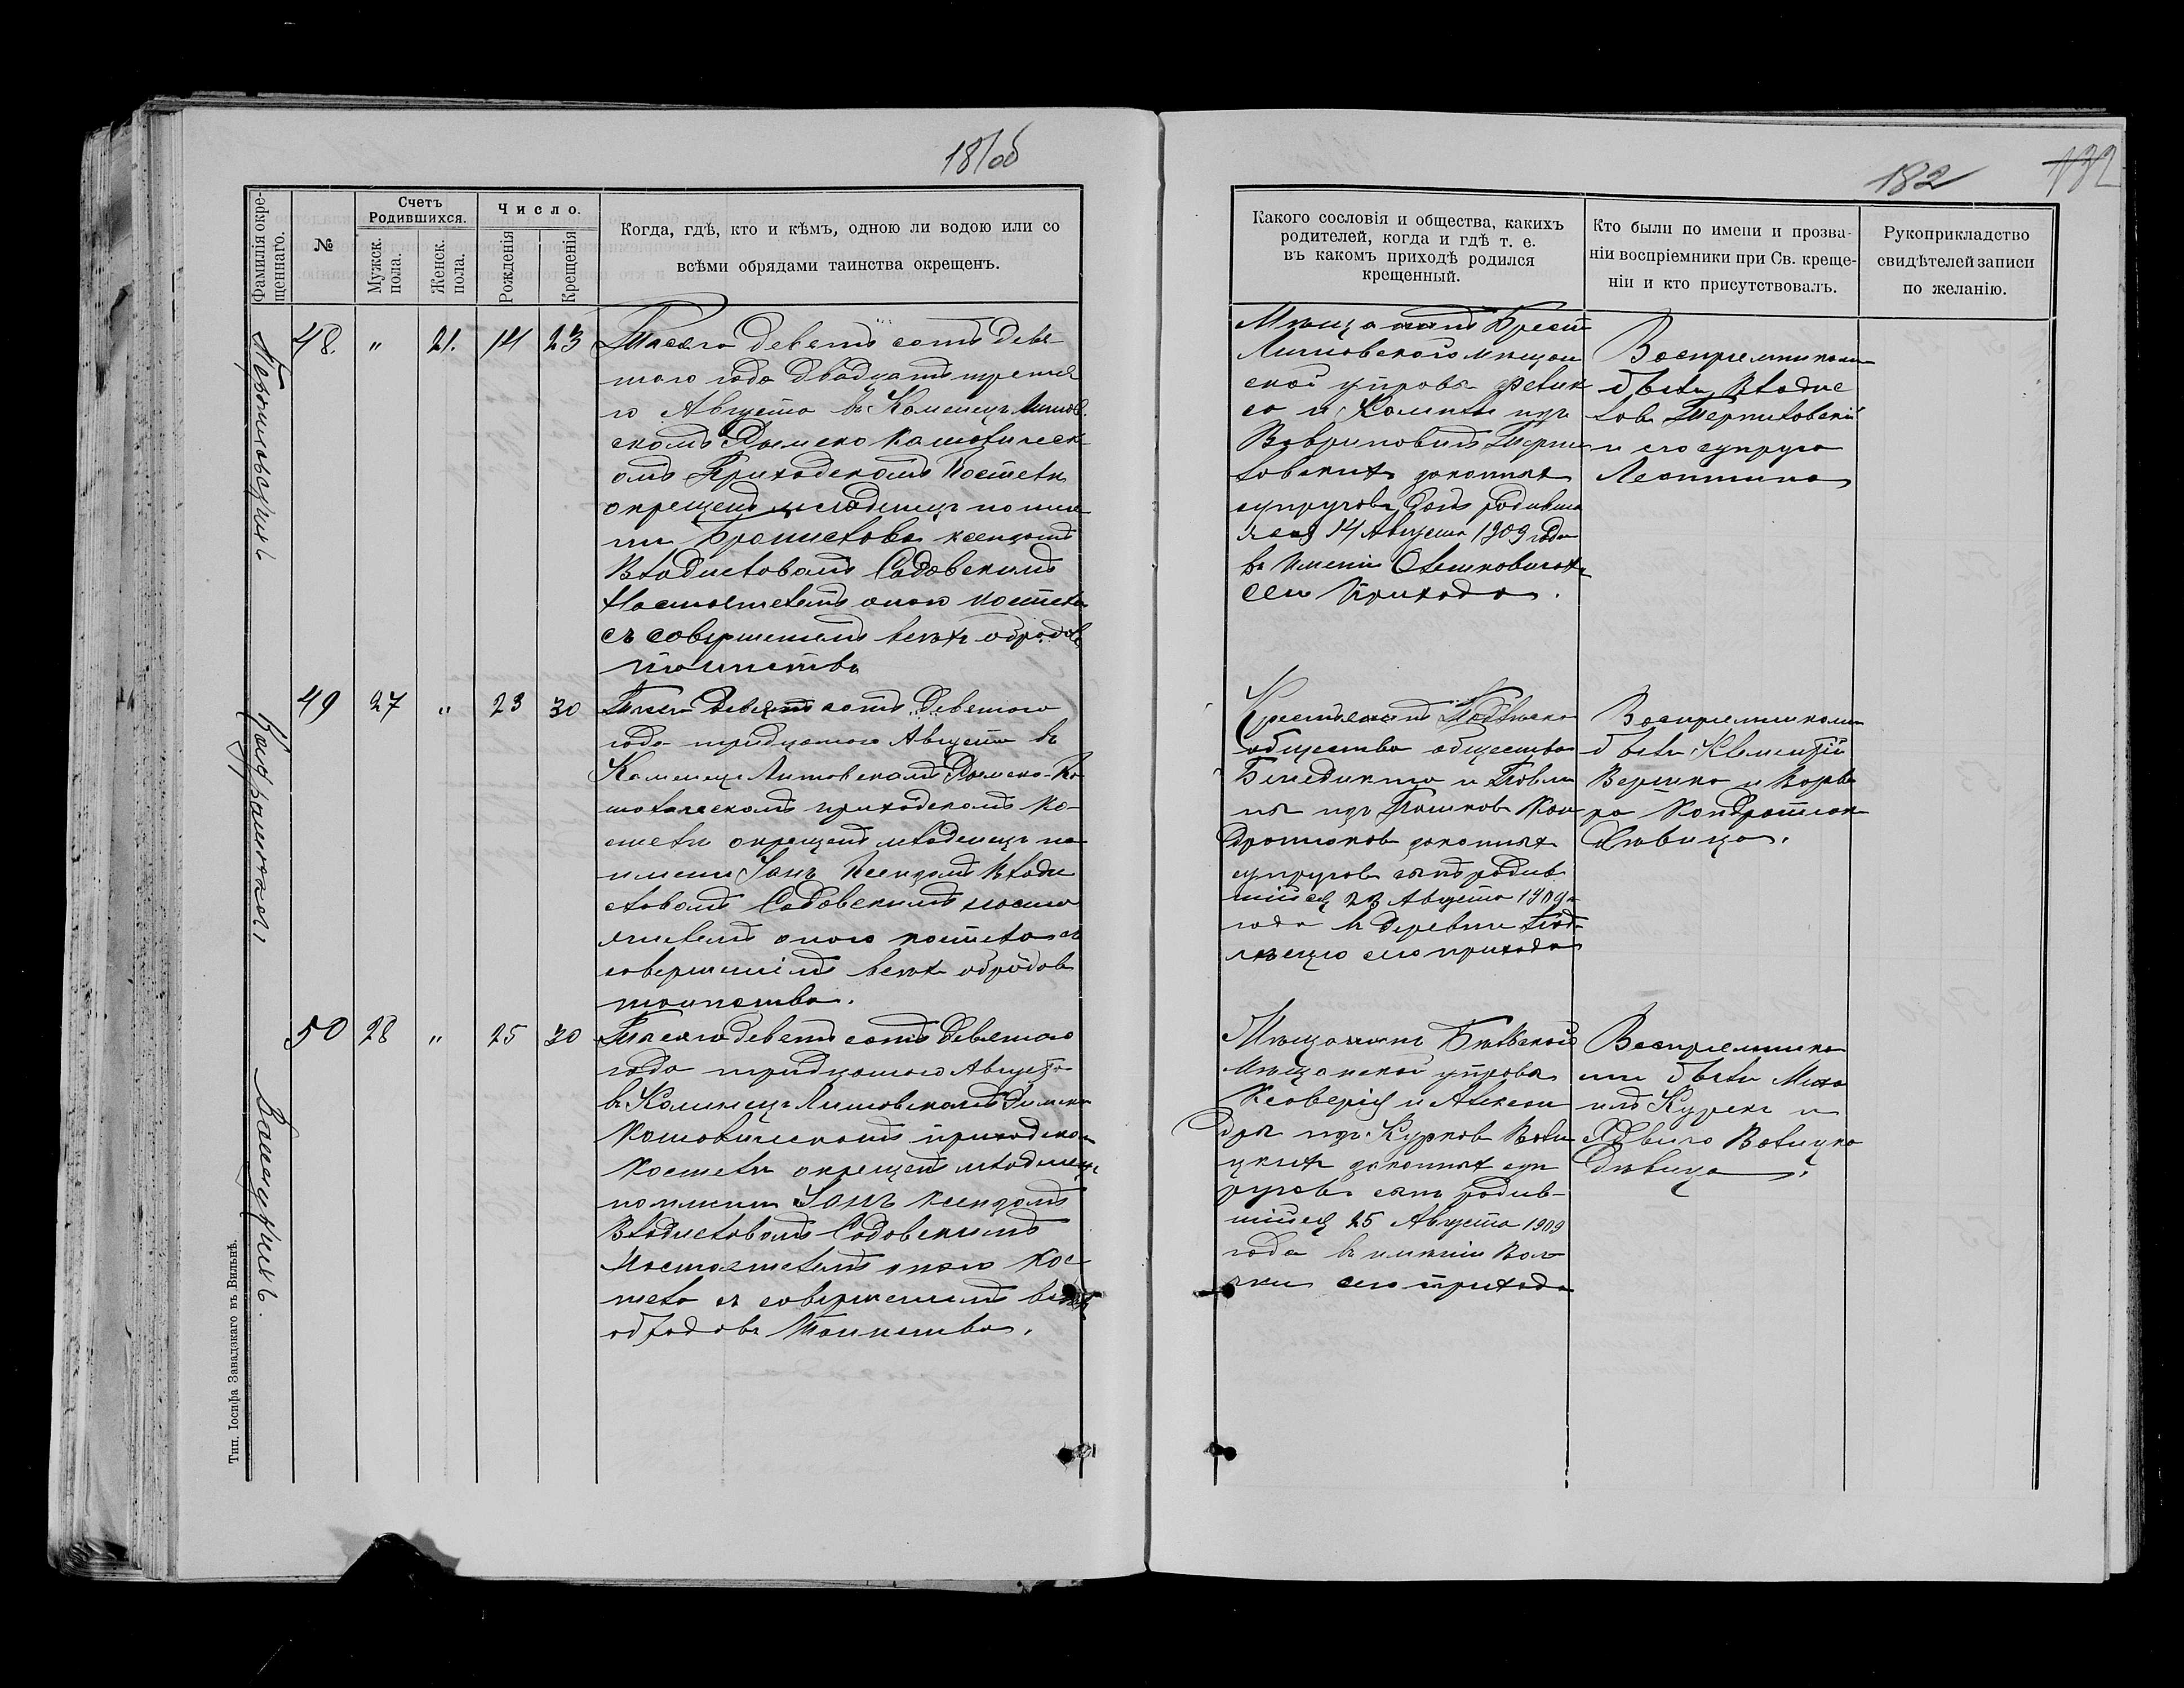 181об
Фамилія окре-
щеннаго.
№
Счетъ
Родившихся.
Мужск.
пола.
Женск.
пола.
Число.
Рожденія
Крещенія
Когда, гдѣ, кто и кѣмъ, одною ли водою или со
всѣми обрядами таинства окрещенъ.
48. " 21. 14 23
Тысяча девять сотъ девя-
таго года двадцать третья
го Августа въ Каменецъ Литов
скомъ Римско Католическ
омъ Приходскомъ Костелѣ
окрещенъ младенецъ по име
ни Бронислава ксендзомъ
Владиславомъ Садовскимъ
Настоятелемъ оного костела
съ совершенiемъ всѣхъ обрядовъ
таинства
49 27 " 23 30
Тысяча девять сотъ девятаго
года тридцатаго Августа въ
Каменецъ Литовскомъ Римско-Ка
толическомъ приходскомъ ко-
стелѣ окрещенъ младенецъ по
имени Янъ Ксендзомъ Влади
славомъ Садовскимъ насто
ятелемъ оного костела съ
совершеніемъ всѣхъ обрядовъ
таинства.
50 28 " 25 30
Тысяча девять сотъ девятаго
года тридцатаго Августа
въ Каменецъ Литовскомъ Римско
Католическомъ приходскомъ
Костелѣ окрещенъ младенецъ
по имени Янъ ксендзомъ
Владиславомъ Садовскимъ
Настоятелемъ оного Кос-
тела съ совершенiемъ всѣхъ
обрядовъ Таинства.
Тип. Іосифа Завадзкаго въ Вильнѣ.
182
132
Какого сословія и общества, какихъ
родителей, когда и гдѣ т. е.
въ какомъ приходѣ родился
крещенный.
Кто были по имени и прозва-
ніи воспріемники при Св. креще-
ніи и кто присутствовалъ.
Рукоприкладство
свидѣтелей записи
по желанію.
Мѣщанъ Брест
Литовского мѣщан
ской управы Феликса
законныхъ
супруговъ дочь родивша
яся 14 Августа 1909 года
въ Имѣніи
сего Прихода.
Воспріемниками
были Владис
лавъ
и его супруга
Леонтина
Крестьянъ
общества
Бенедикта и Павли
ны изъ Пашковъ Кон
дратюковъ законныхъ
супруговъ сынъ родив
шійся 23 Августа 1909
года въ деревни
сего прихода
Воспріемниками
были Климентій
Вершко и Варва
ра Кондратюкъ
дѣвица.
Мѣщанъ Бѣльской
Мѣщанской управы
Ксаверія и Алексан
дры изъ Курковъ
законныхъ суп
руговъ сынъ родив-
шійся 25 Августа 1909
года въ имѣніи
сего прихода
Воспріемника
ми были Миха
илъ Курекъ и
Ядвига
дѣвица.